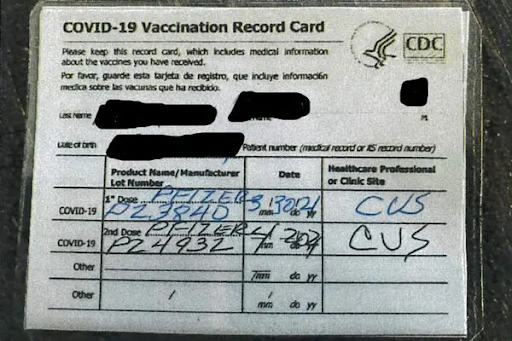 COVID-19 Vaccination Record Card
CDC
Please keep this record card, which includes medical information
about the vaccines you have received.
Por favor, guarde esta tarjeta de registro, que incluye información
médica sobre las vacunas que ha recibido.
Last Name
MI
Date of birth Patient number (medical record or IIS record number)
Product Name/Manufacturer Date Healthcare Professional
Lot Number or Clinic Site
1st Dose PFIZER 3/30/21 CVS
COVID-19 PZ3840 mm dd yy
2nd Dose PFIZER CVS
COVID-19 PZ4932 mm dd yy
Other
mm dd yy
Other /
mm dd yy